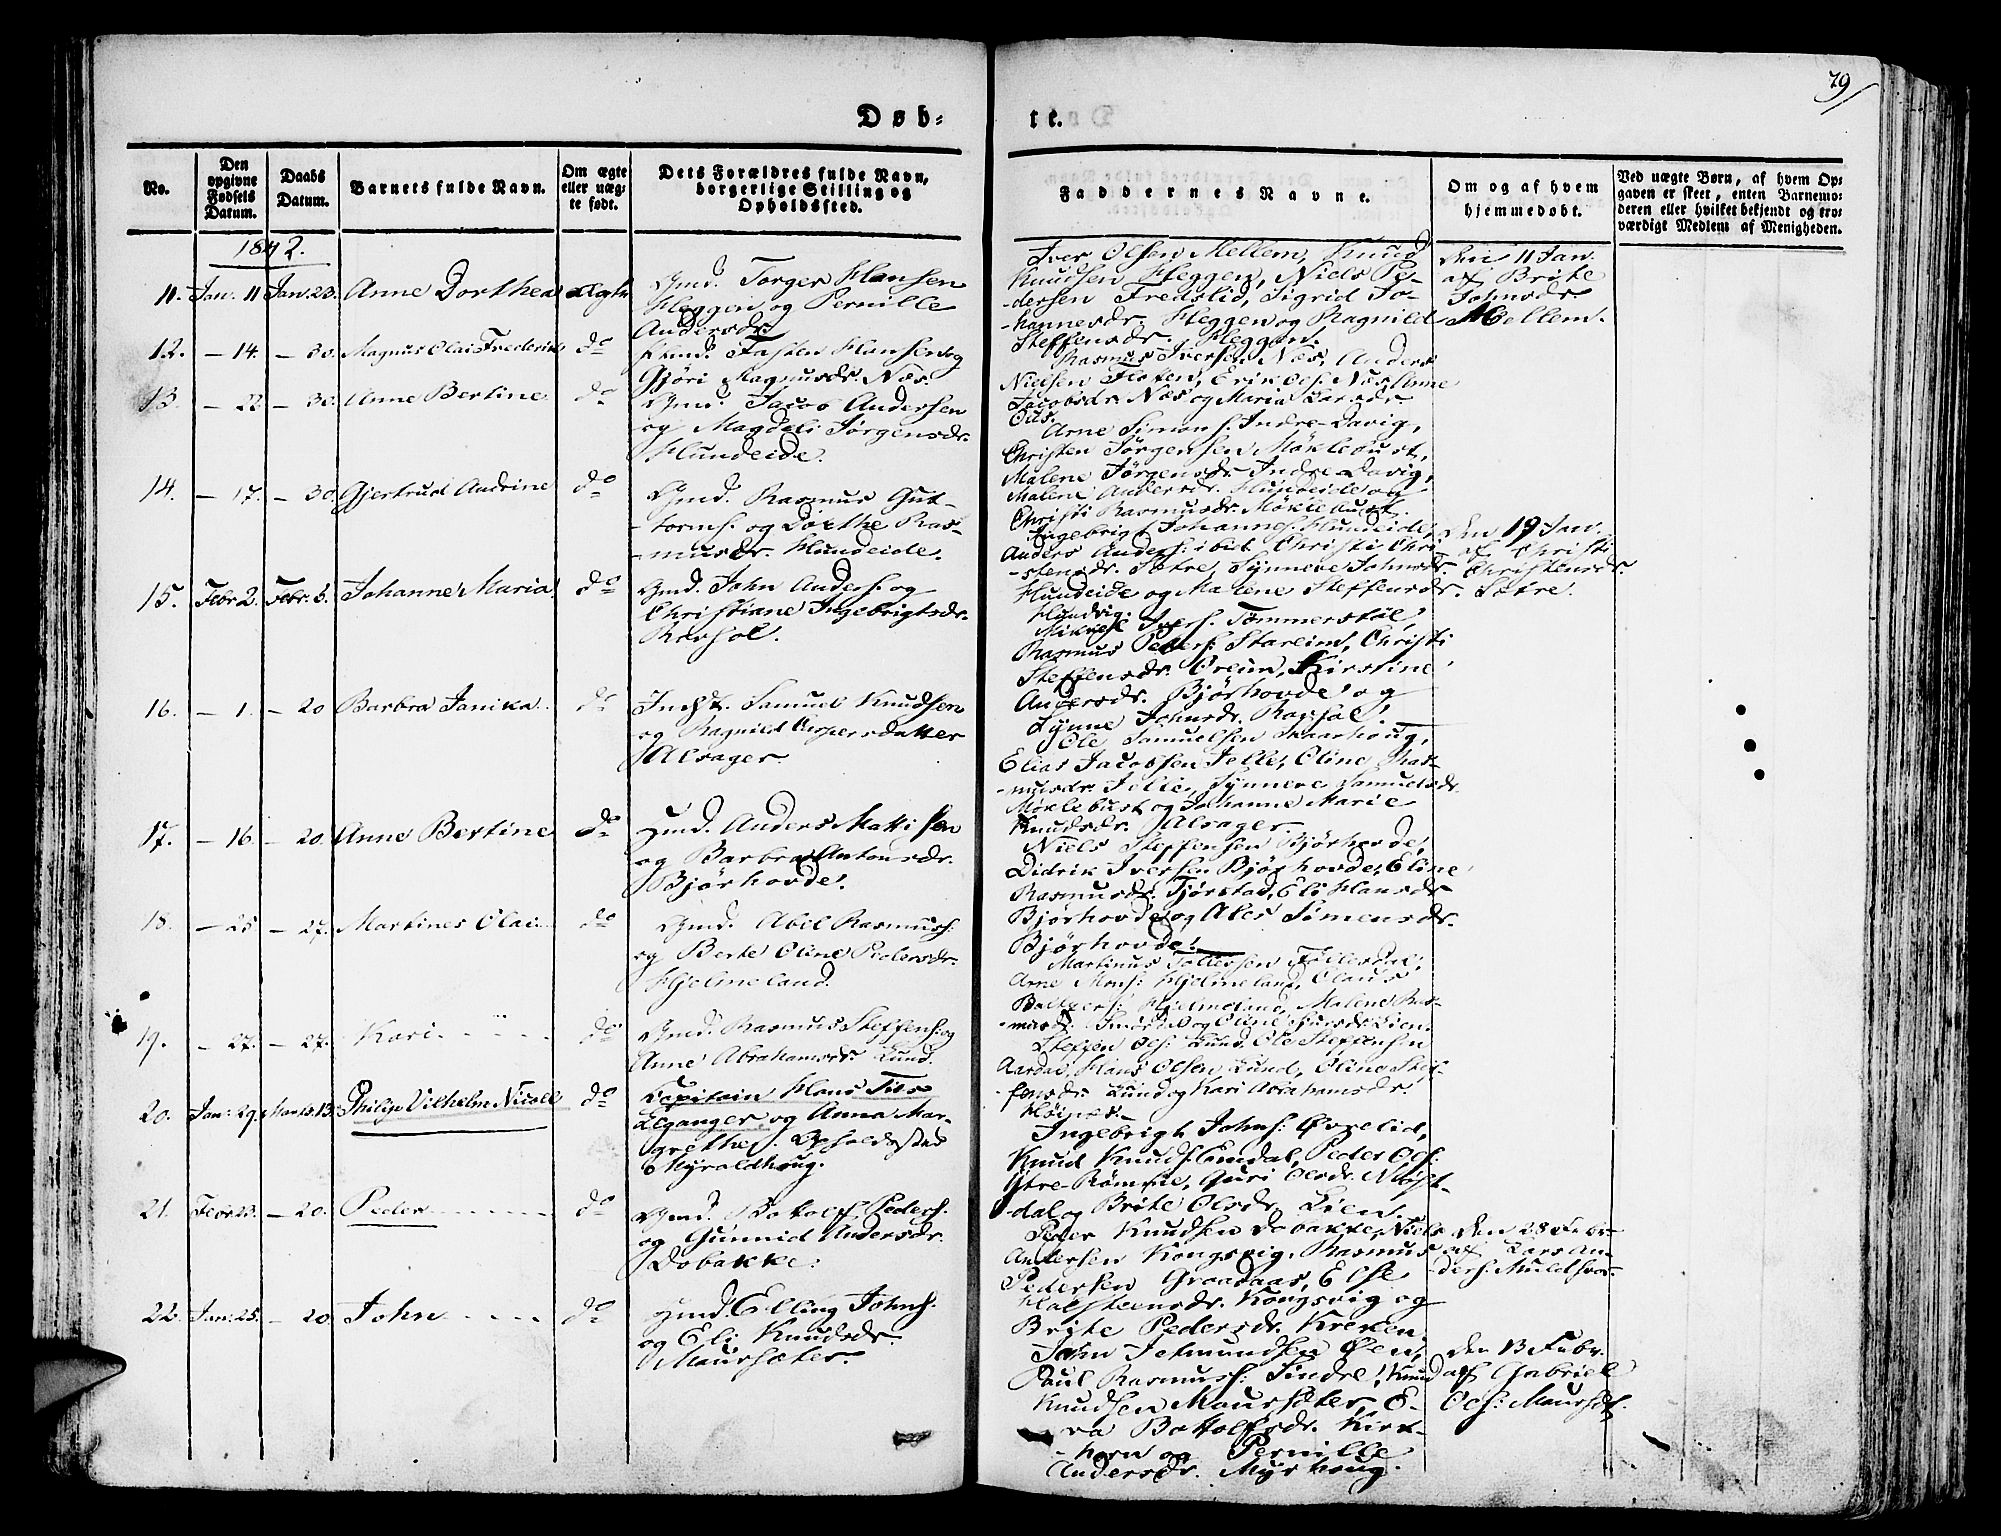 79
Døb-
te.
No.
Den opgivne Fødsels Datum.
Daabs Datum.
Barnets fulde Navn.
Om ægte eller uægte født.
Dets Forældres fulde Navn, borgerlige Stilling og Opholdssted.
Faddernes Navne.
Om og af hvem hjemmedøbt.
Ved uægte Børn, af hvem Opgaven er skeet, enten Barnemoderen eller hvilket bekjendt og troværdigt Medlem af Menigheden.
1842.
11. Jan. 11 Jan. 23. Anne Dorthea ægte
Gmd. Torger Hansen
Heggen og Pernille
Andersdr.
Iver Olsen Mellem, Knud
Knudsen Heggen, Niels Pe-
-dersen Fredslid, Sigrid Jo-
-hannesdr. Heggen og Ragnild
Steffensdr. Heggen.
Den 11 Jan.
af Brite
Johnsdr.
Mellem.
12. - 14. - 30. Magnus Olai Frederik do
Fasten Hansen og
Gjøri Rasmusdr. Næs.
Rasmus Iversen Næs, Anders
Nielsen Floten, Erik Ols. Næs, Anne
Jacobsdr. Næs og Maria Larsdr.
Ous.
13. - 22 - 30. Anne Bertine do
Gmd. Jacob Andersen
og Magdeli Jørgensdr.
Hundeide.
Arne Simons. Indre-Davig,
Christen Jørgensen Møklebust,
Malene Jørgensdr. Indre Davig,
Malene Andersdr. Hundeide og
Christi Rasmusdr. Møklebust.
14. - 17. - 30. Gjertrud Andrine do
Gmd. Rasmus Gut-
-torms. og Dorthe Ras-
-musdr. Hundeide.
Ingebrigt Johannes. Hundeide,
Anders Anders: ibid. Christi Chri-
-stensdr. Sætre, Synneve Johnsdr.
Hundeide og Malene Steffensdr.
Hundvig.
Den 19 Jan.
af Christi
Christensdr.
Sætre.
15. Febr. 2. Febr. 6. Johanne Maria do
Gmd. John Anders. og
Christiane Ingebrigtsdr.
Ravsol.
Mikkel Ivers. Tømmerstøl,
Rasmus Peders. Stareim, Christi
Steffensdr. Oreim, Kirstine
Andersdr. Bjørhovde og
Synne Johnsdr. Ravsol.
16. - 1. - 20 Barbra Janika do
Indst. Samuel Knudsen
og Ragnild Caspersdatter
Alsager.
Ole Samuelsen Skaarhoug,
Elias Jacobsen Jelle, Oline Ras-
-musdr. Jelle, Synneve Samuelsdr.
Møklebust og Johanne Marie
Knudsdr. Alsager.
17. - 16. - 20. Anne Bertine do
Gmd. Anders Mattisen
og Barbra Antonsdr.
Bjørhovde.
Niels Steffensen Bjørhovde,
Didrik Iversen Bjørhovde, Eline
Rasmusdr. Tjørstad, Eli Hansdr.
Bjørhovde og Ales Simensdr.
Bjørhovde.
18. - 25 - 27. Martines Olai do
Gmd. Abel Rasmuss.
og Berte Oline Pedersdr.
Hjelmeland.
Martinus Tollefsen
Arne Mons. Hjelmeland, Claus
Hjelmeland, Malene Ras-
-musdr. og Oline Lien.
19. - 27. - 27. Kari do
Gmd. Rasmus Steffens. og
Anne Abrahamsdr. Lund.
Steffen Ols. Lund, Ole Steffensen
Aardal, Hans Olsen Lund, Oline Stef-
-fensdr. Lund og Kari Abrahamsdr.
Høines.
20. Jan: 29. Marts 13. Philip Vilhelm Nicoll do
Kapitain Hans Tiis
Elganger og Anna Mar-
grethe. Opholdssted
Myraldhoug.
Ingebrigt Johns. Øvrelid,
Knud Knuds. Emdal, Peder Ols.
Ytre-Rømme, Guri Olsdr. Møst-
-dal og Brite Olsdr. Lien.
21. Febr. 23. - 20. Peder do
Gmd. Botolf Peders.
og Gunnild Andersdr.
Dobakke.
Peder Knudsen Dobakke, Niels
Andersen Kongsvig, Rasmus
Pedersen Graadaas, Else
Halsteensdr. Kongsvig og
Brite Pedersdr. Kreken.
Den 28 Febr.
af Lars An-
-ders. Muldsvor-
22. Jan: 25. - 20. John do
Gmd. Elling Johns.
og Eli Knudsdr.
Maursæter.
John Jetmundsen Øen,
Paul Rasmuss. Sindre, Knud
Knudsen Maursæter, E-
-va Botolfsdr. Kirk-
-horn og Pernille
Andersdr. Myrhoug.
Den 13 Febr.
af Gabriel
Ols: Maurset.